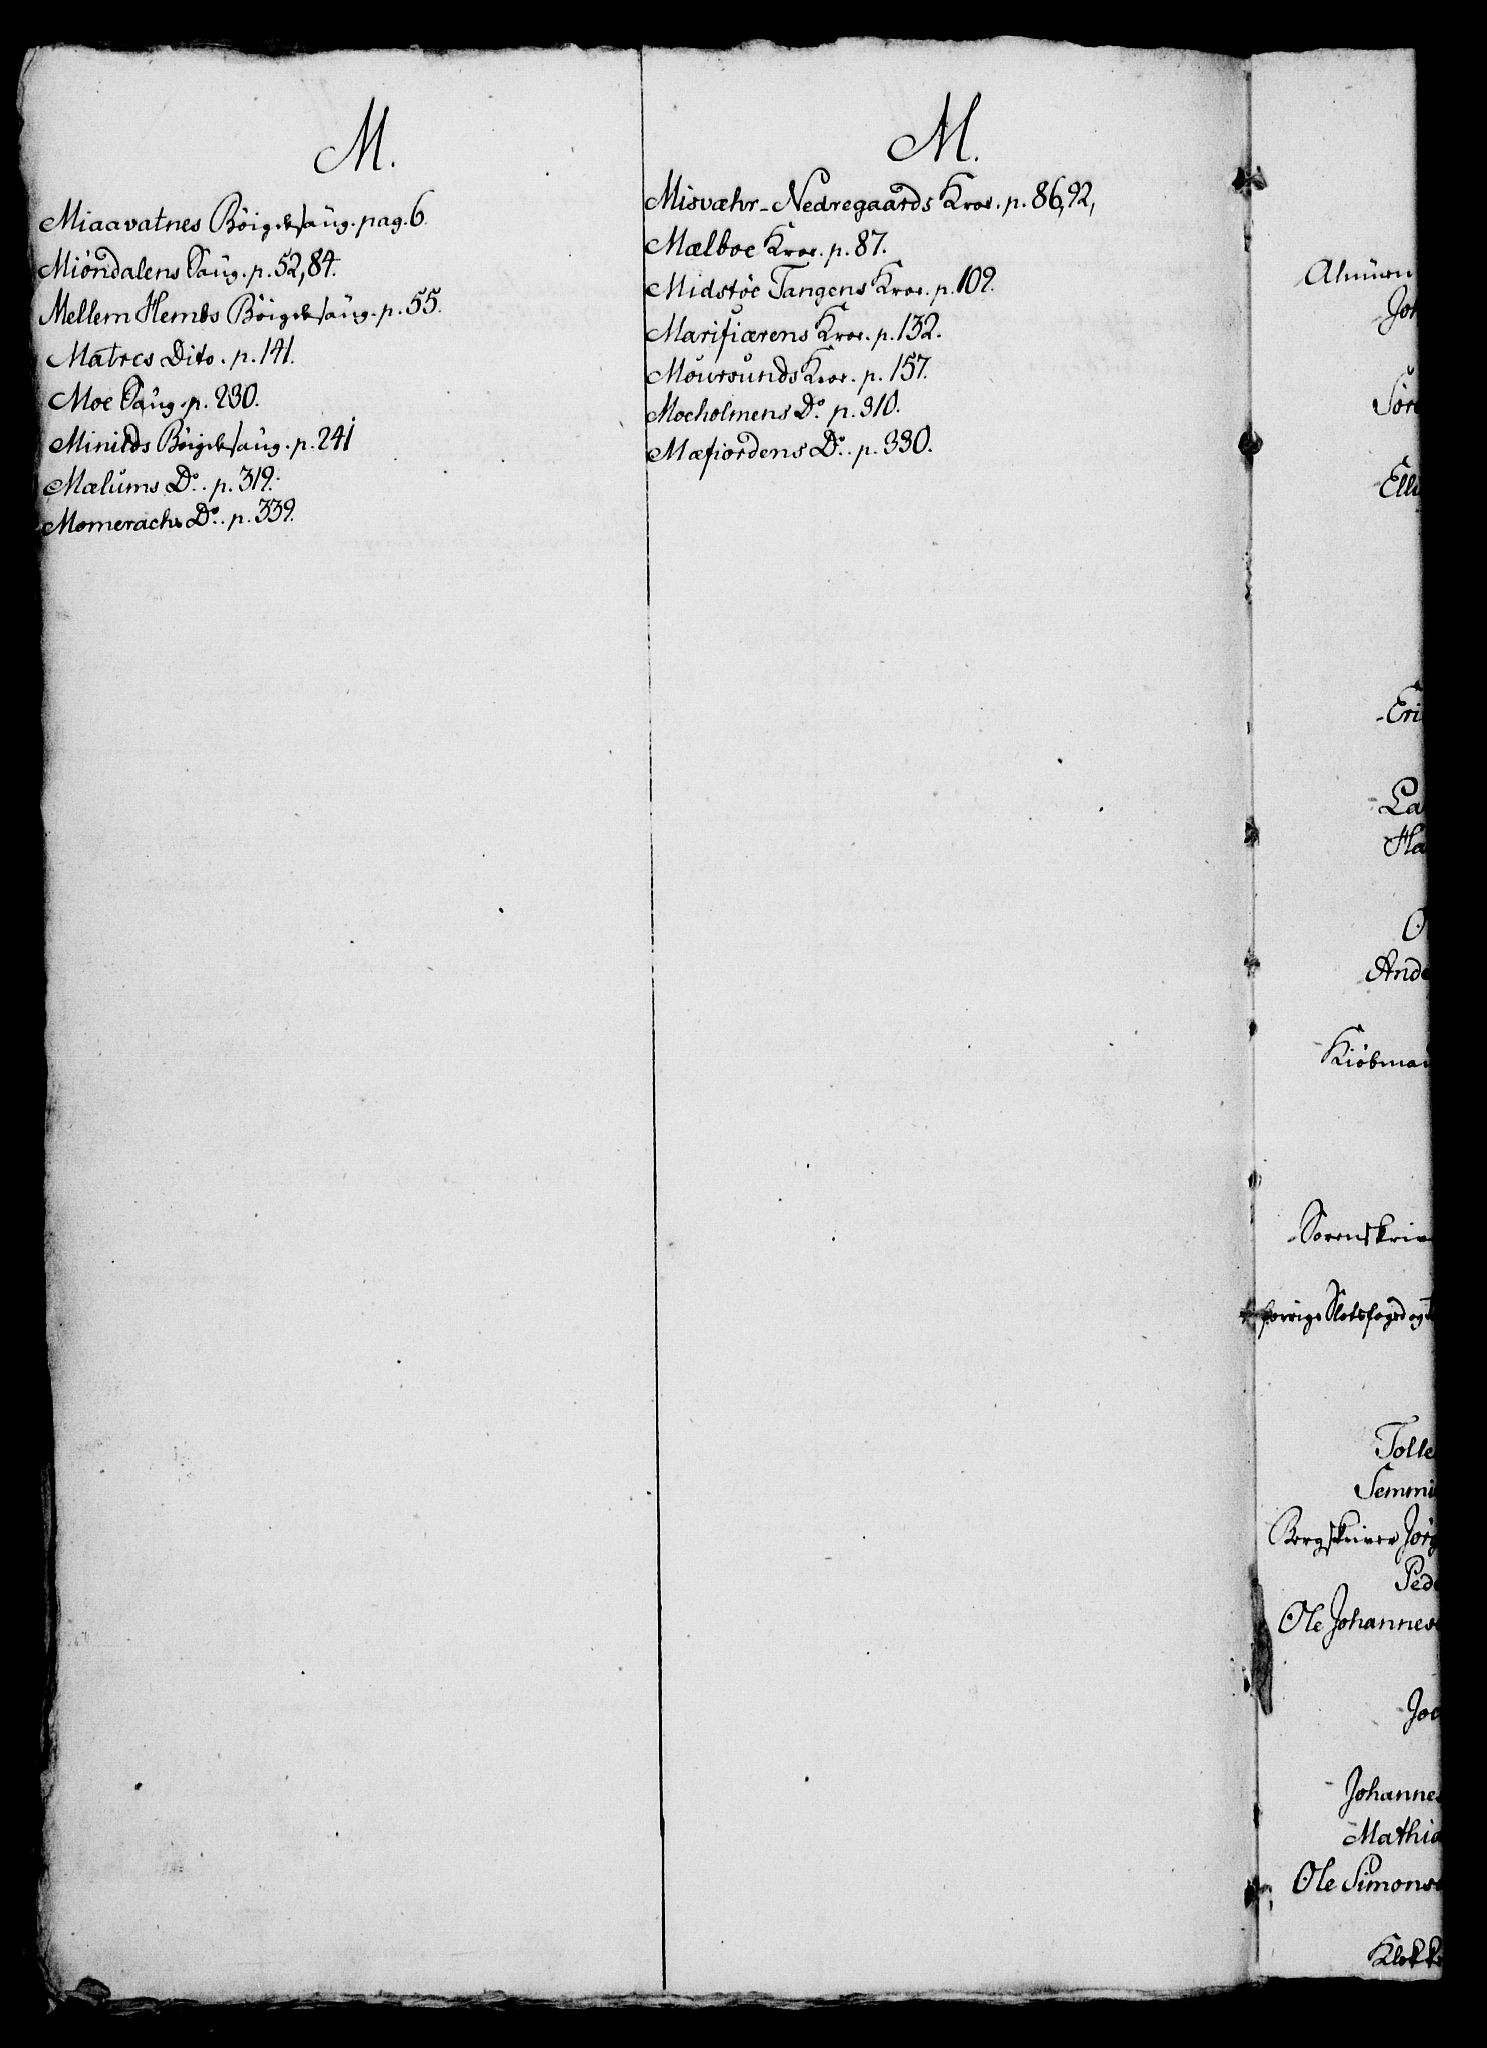 M.
Miaavatnes Böigdesaug. pag. 6.
Miöndalens Saug. p. 52, 84.
Mellem Hembs Böigdesaug. p. 55.
Matres Dito. p. 141.
Moe Saug. p. 230.
Minilds Böigdesaug. p. 241
Mælums Do. p. 319.
Momerachs Do. p. 339.
M.
Misvæhr-Nedregaards Kroe. p. 86, 92,
Mælboe Kroe. p. 87.
Midstöe Tangens Kroe. p. 109.
Marifiærens Kroe. p. 132.
Moursunds Kroe. p. 157.
Moeholmens Do. p. 310.
Mæfiordens Do. p. 330.
Almuen
Joh
Sör
Elle
Eri
La
Ha
O
Ande
Kiöbman
Sorenskriv
forrige Slotsfoged og
Tolle
Semmi
Bergskriver Jörg
Pede
Ole Johannes
Joe
Johannes
Mathia
Ole Simons
Klokke